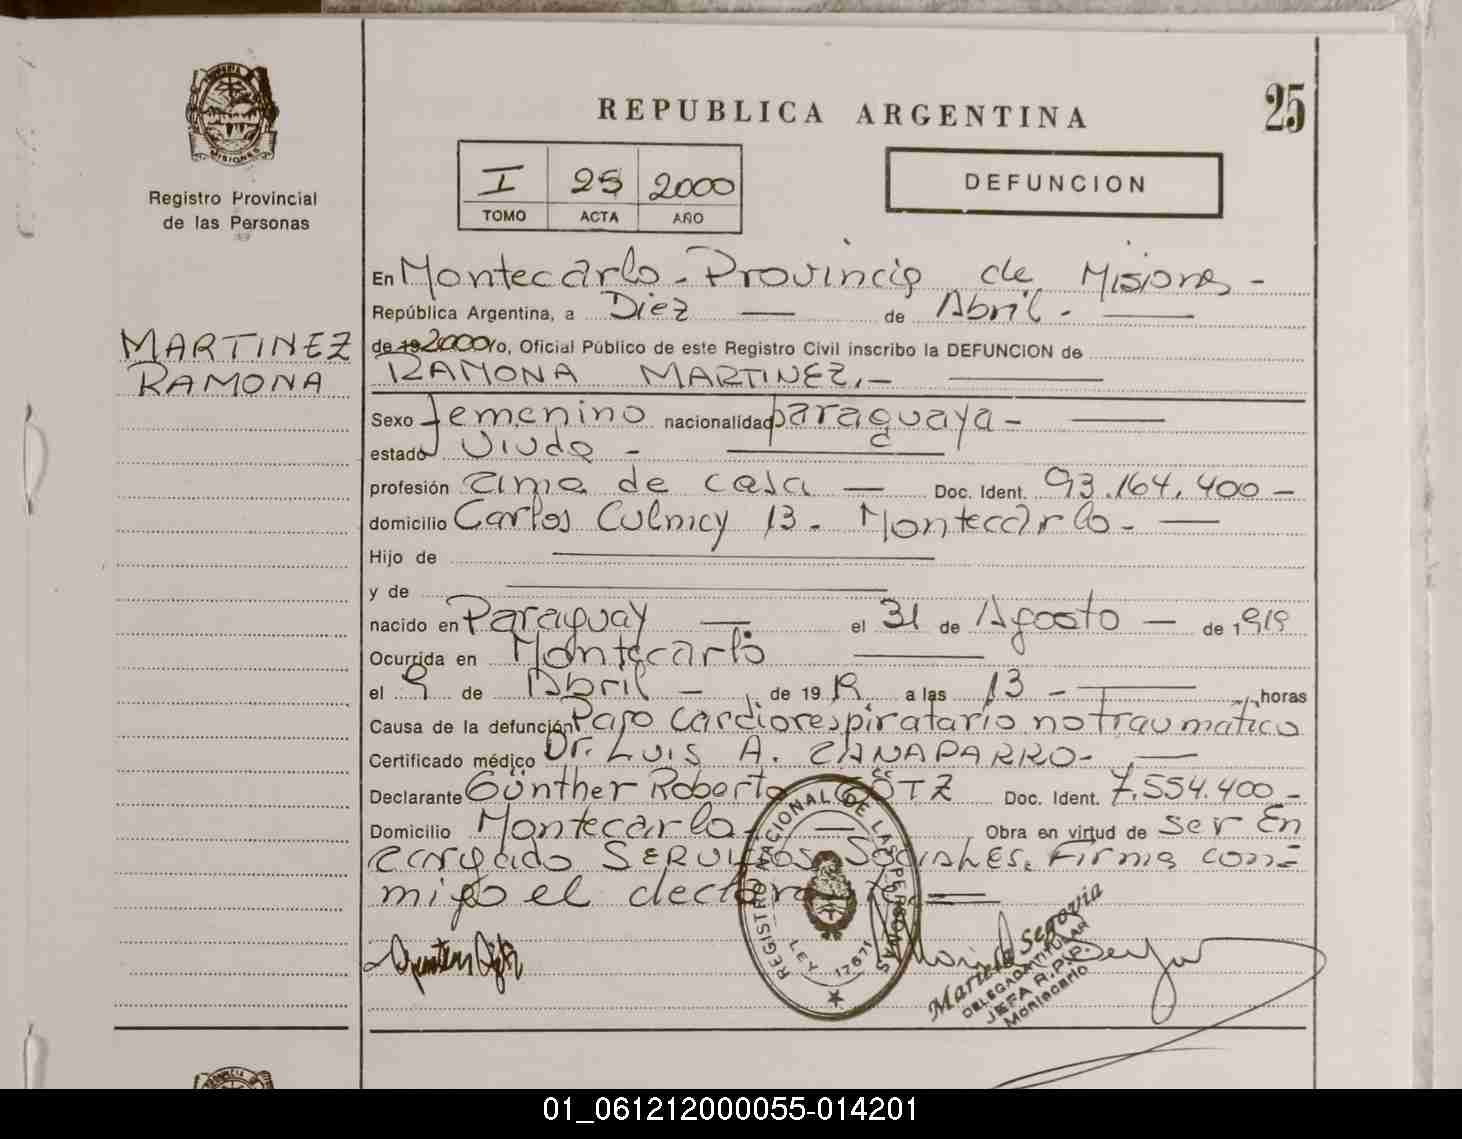 PROVINCIA DE
MISIONES
Registro Provincial
de las Personas
MARTINEZ
RAMONA
REPUBLICA ARGENTINA
25
I 25 2000
TOMO ACTA AÑO
DEFUNCION
En Montecarlo - Provincia de Misiones -
República Argentina, a Diez — de Abril - —
de 19 2000 Yo, Oficial Público de este Registro Civil inscribo la DEFUNCION de
RAMONA MARTINEZ.- —
Sexo femenino nacionalidad paraguaya - —
estado Viuda - —
profesión ama de casa — Doc. Ident. 93.164.400 -
domicilio Carlos Culmey 13 - Montecarlo - —
Hijo de —
y de —
nacido en Paraguay — el 31 de Agosto — de 1919
Ocurrida en Montecarlo —
el 9 de Abril — de 19 a las 13 - — horas
Causa de la defunción Paro cardiorespiratario no traumatico
Certificado médico Dr. LUIS A. CANAPARRO - —
Declarante Günther Roberto GÖTZ Doc. Ident. 7.554.400 -
Domicilio Montecarlo - — Obra en virtud de ser En
cargado SERVICIOS SOCIALES. Firma con=
migo el declarante —
REGISTRO NACIONAL DE LAS PERSONAS
LEY 17671
Mariela Segovia
DELEGADA TITULAR
JEFA R.P.P.
Montecarlo
01_061212000055-014201